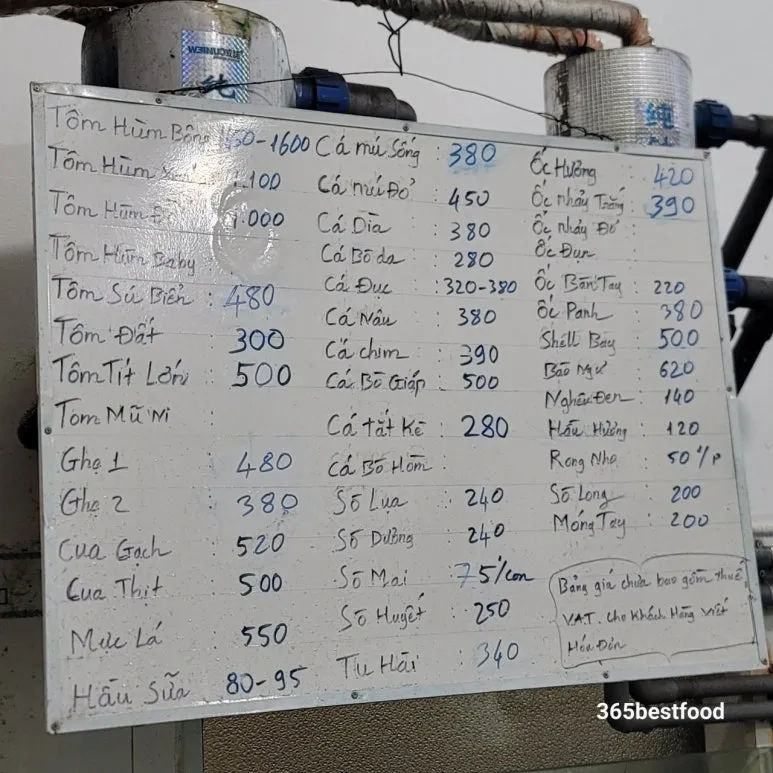 Tôm Hùm Bông 1600
Tôm Hùm 1.100
Tôm Hùm 1.000
Tôm Hùm Baby
Tôm Sú Biển : 480
Tôm Đất : 300
Tôm Tít Lớn : 500
Tôm Mũ Ni :
Ghẹ 1 : 480
Ghẹ 2 : 380
Cua Gạch : 520
Cua Thịt : 500
Mực Lá : 550
Hàu Sữa 80-95
Cá mú Sống : 380
Cá mú Đỏ : 450
Cá Dìa : 380
Cá Bò da : 280
Cá Đục : 320-380
Cá Nâu : 380
Cá chim : 390
Cá Bò Giáp : 500
Cá Tắt Kè : 280
Cá Bò Hòm :
Sò Lụa : 240
Sò Dương : 240
Sò Mai : 75/con
Sò Huyết : 250
Tu Hài : 340
Ốc Hương : 420
Ốc Nhảy Trắng : 390
Ốc Nhảy Đỏ :
Ốc Đụn :
Ốc Bàn Tay : 220
Ốc Panh : 380
Shell Bay : 500
Bào Ngư : 620
Nghêu Đen : 140
Hàu Hương : 120
Rong Nho : 50/P
Sò Long : 200
Móng Tay : 200
Bảng giá chưa bao gồm thuế
V.A.T. Cho Khách Hàng Viết
Hóa Đơn
365bestfood